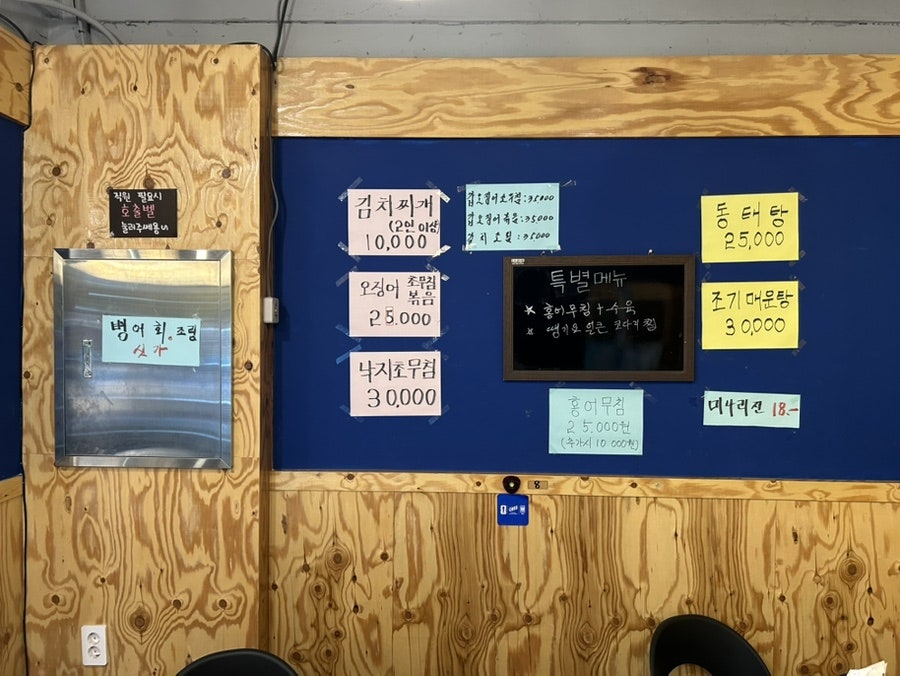 직원 필요시
호출벨
눌러주세용
병어 회.조림
싯가
김치찌개
(2인 이상)
10,000
오징어 초무침
볶음
25.000
낙지초무침
30,000
갑오징어초무침:35000
갑오징어볶음:35000
김치오징:35000
특별메뉴
홍어무침+수육
홍어무침
25.000원
(추가시 10.000원)
동태탕
25,000
조기매운탕
30,000
미나리전 18.-
8